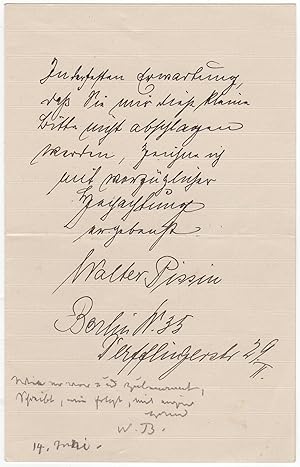 In der festen Erwartung,
daß Sie mir diese kleine
Bitte nicht abschlagen
werden, zeichne ich
mit vorzüglicher
Hochachtung
ergebenst
Walter Pissin
Berlin W. 35
Derfflingerstr 29
II.
W. B.
14. Juni.